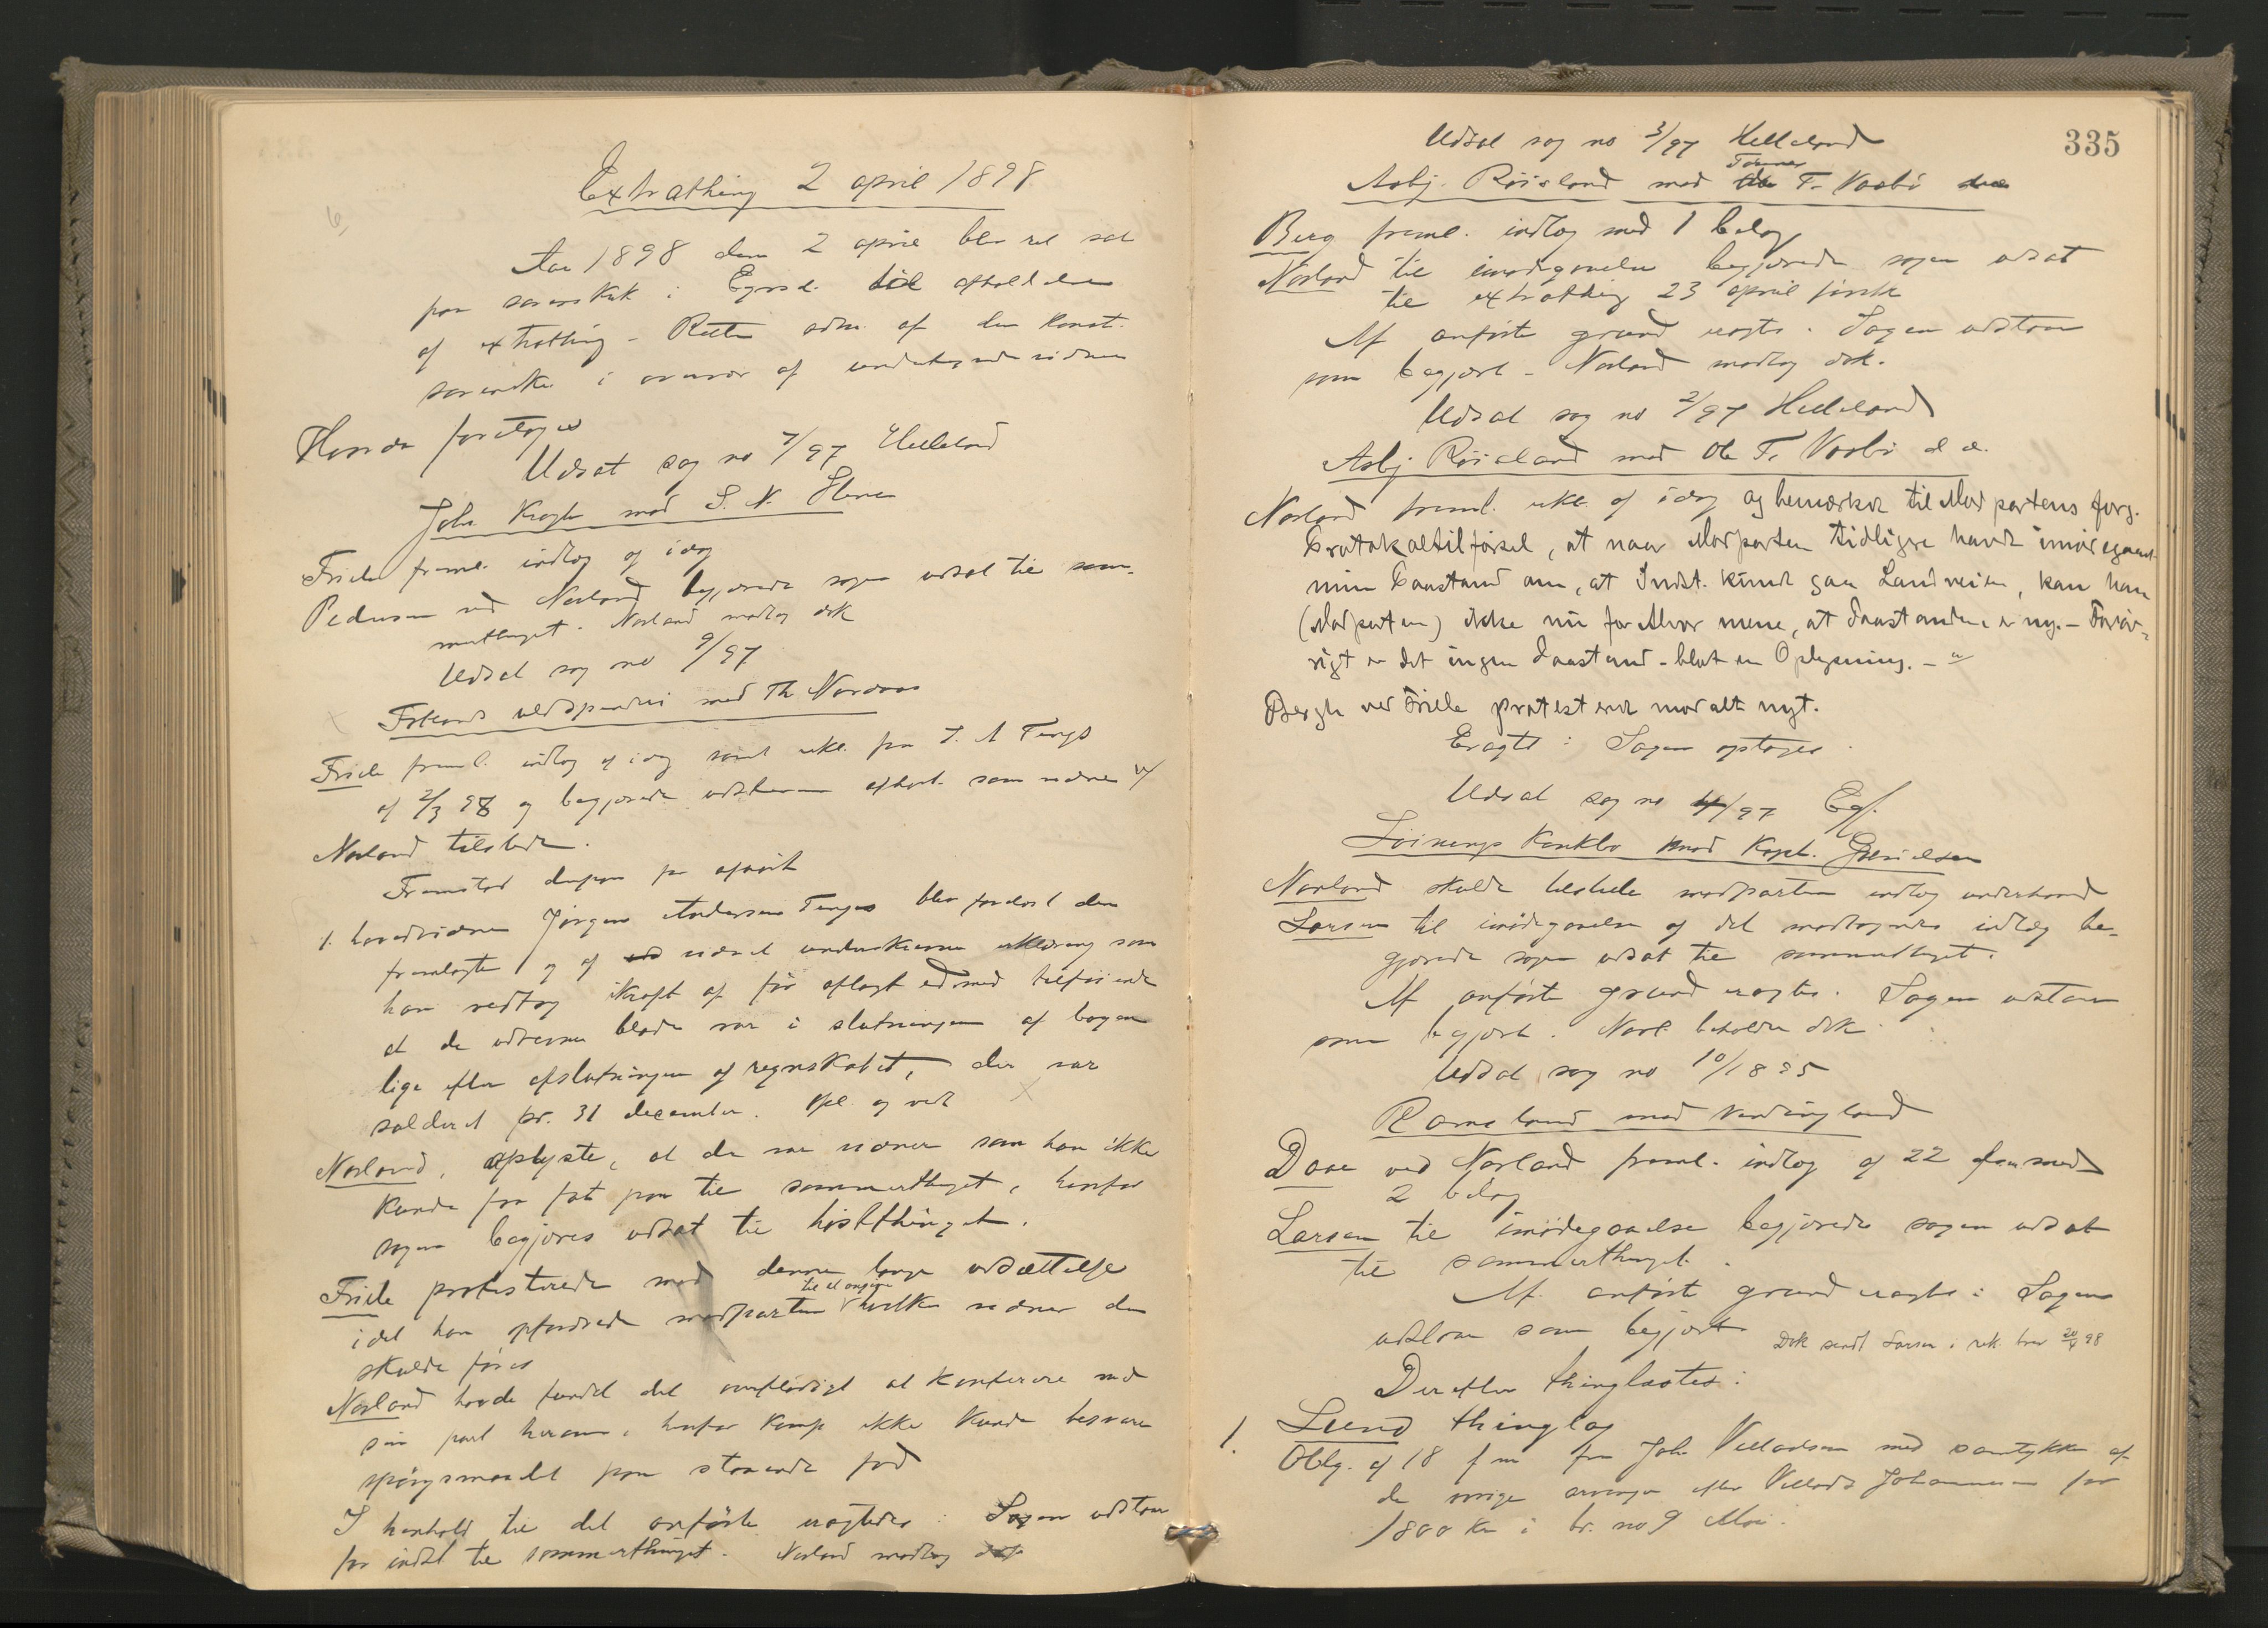 Extrathing 2 april 1898
Aar 1898 den 2 april blev ret sat
paa sorensk.k. i Egersd. til afholdelse
af extrathing - Retten adm. af den konst.
sorensk. i overvær af undertegnede vidner
Hvorda foretoges
Udsat sag no 7/97 Helleland
Johs. Krogh mod S. N.
Friele freml. indlæg af idag
Pedersen ved Norland begjærede sagen udsat til som-
merthinget. Norland modtog dok
Udsat sag no 9/97
mod Th Nordaas
Friele freml. indlæg af idag samt rekl. fra J. A Tengs
af 2/3 98 og begjærede afhørt som vidne
Norland tilstede.
Fremstod derpaa for at afhøres
1. hovedvidne Jørgen Andersen Tengs blev foreløst den
fremlagte og af vidnet underskrevne erklæring som
han vedtog ikraft af før aflagt ed med tilføiende
at de udrevne blade var i slutningen af bogen
lige efter afslutningen af regnskabet, der var
salderet pr. 31 december. Opl. og vedt
Norland, oplyste, at der var vidner som han ikke
kunde faa fat paa til sommerthinget, hvorfor
sagen begjæres udsat til høstthinget.
Friele protesterede mod denne lange udsættelse
idet han opfordrede modparten til at angive hvilke vidner der
skulde føres
Norland havde fundet det overflødigt at konferere med
sin part herom, hvorfor komp ikke kunde besvare
spørgsmaalet paa staaende fod
I henhold til det anførte eragtedes: Sagen udstaar
for indtil til sommerthinget. Norland modtog dok
335
Udsat sag no 3/97 Helleland
Asbj. Røisland mod Tønnes F. Vasbø
Berg freml. indlæg med 1 belag
Norland til imødegaaelse begjærede sagen udsat
til extrathing 23 april førstk
Af anførte grund eragtes. Sagen udstaar
som begjært - Norland modtog dok.
Udsat sag no 2/97 Helleland
Asbj Røisland mod Ole F. Vasbø d æ.
Norland freml. rekl. af idag og bemærket til Modpartens forg.
Protokoltilførsel, at naar Modparten tidligere havde imødegaaet
min Paastand om, at Indst. kunde gaa Landveien, kan han
(Modparten) ikke nu for Alvor mene, at Paastanden er ny. - Forøv-
rigt er det ingen Paastand - blot en Oplysning. -
Bergh ved Friele protesterede mod alt nyt.
Eragtet: Sagen optages
Udsat sag no 4/97 Eg.
mod Kapt. Gabrielsen
Norland skulde tilstille modparten indlæg underhaand
Larsen til imødegaaelse af det modtagende indlæg be-
gjærede sagen udsat til sommerthinget.
Af anførte grund eragtes. Sagen udstaar
som begjært. Norl. beholder dok
Udsat sag no 10/1895
Ramsland mod
Daae ved Norland freml. indlæg af 22 med
2 bilag
Larsen til imødegaaelse begjærede sagen udsat
til sommerthinget.
Af anført grund eragtes: Sagen
udstaar som begjært Dok sendt Larsen i rek. brev 20/4 98
Derefter thinglæstes:
1. Lund thinglag
Oblg. af 18 f m fra Johs Villadsen med samtykke af
de øvrige arvinger efter Villads Johannesen for
1800 kr i br. no 9 Moi.